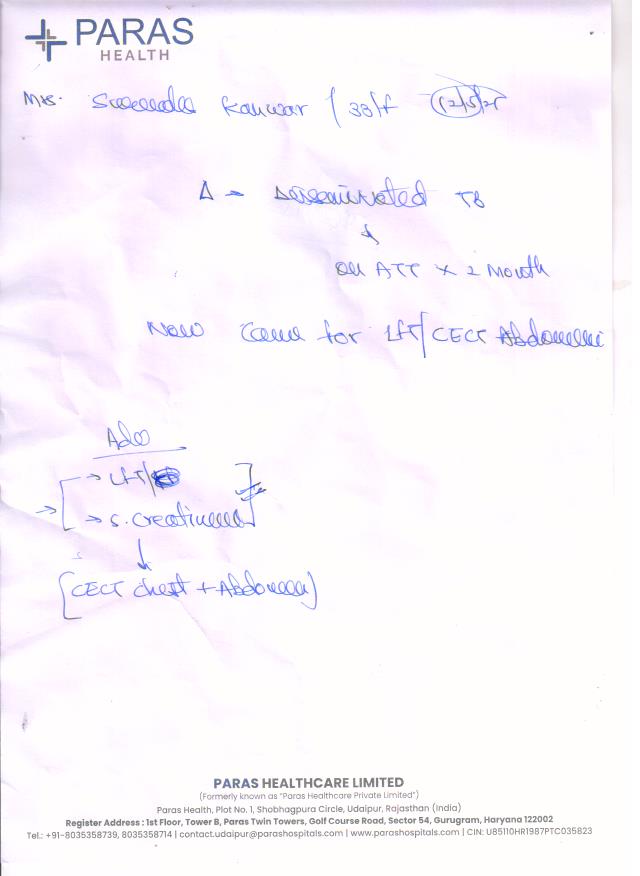 PARAS
HEALTH
Mrs. Kanwar / 33/f
Δ - Disseminated TB
on ATT x 2 Month
Now came for LFT/CECT Abdomen
Adv
→ LFT/
→ S. Creatinine
(CECT chest + Abdomen)
PARAS HEALTHCARE LIMITED
(Formerly known as "Paras Healthcare Private Limited")
Paras Health, Plot No. 1, Shobhagpura Circle, Udaipur, Rajasthan (India)
Register Address : 1st Floor, Tower B, Paras Twin Towers, Golf Course Road, Sector 54, Gurugram, Haryana 122002
Tel.: +91-8035358739, 8035358714 | contact.udaipur@parashospitals.com | www.parashospitals.com | CIN: U85110HR1987PTC035823